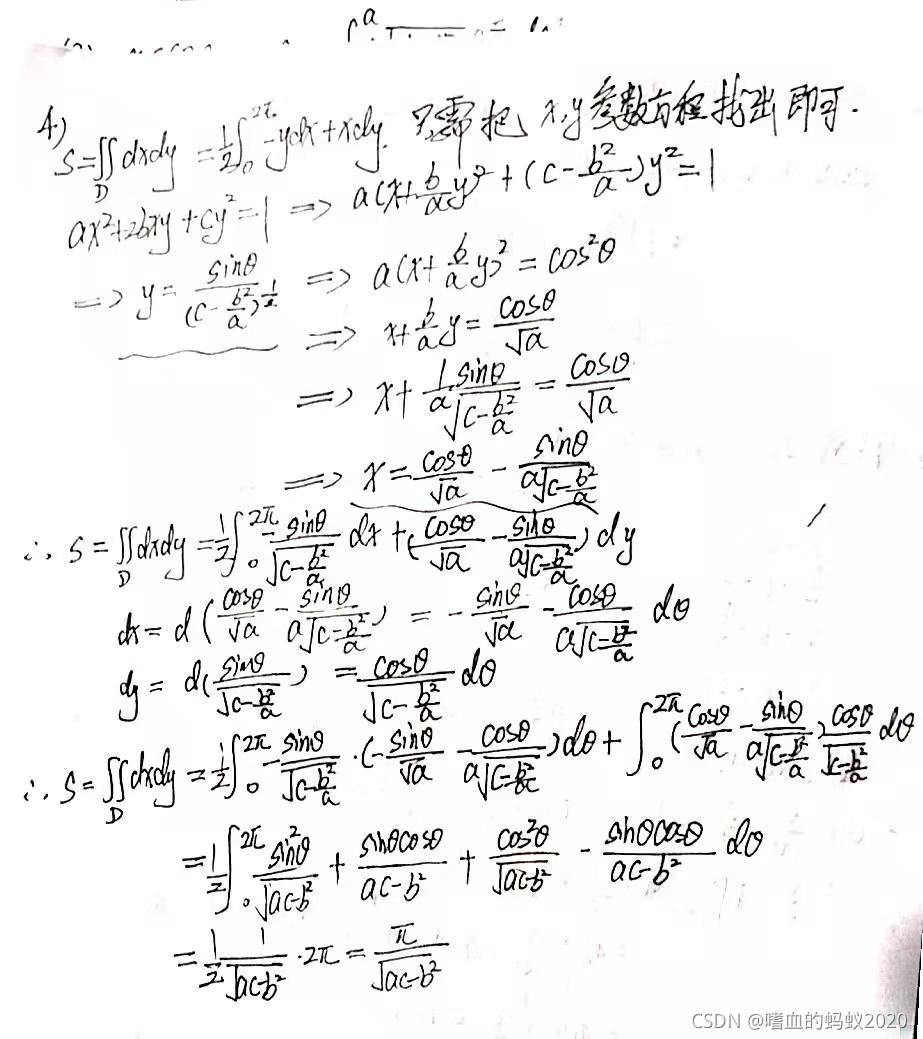 4)
S=∬_D dxdy = 1/2 ∫_0^{2π} -ydx+xdy. 只需把 x,y 参数方程找出即可.
ax²+2bxy+cy²=1 ⟹ a(x+b/a y)²+(c-b²/a)y²=1
⟹ y= sinθ/(c-b²/a)^{1/2} ⟹ a(x+b/a y)²=cos²θ
⟹ x+b/a y= cosθ/√a
⟹ x+ 1/a sinθ/√(c-b²/a) = cosθ/√a
⟹ x= cosθ/√a - sinθ/(a√(c-b²/a))
∴ S=∬_D dxdy = 1/2 ∫_0^{2π} -sinθ/√(c-b²/a) dx+(cosθ/√a - sinθ/(a√(c-b²/a)))dy
dx=d(cosθ/√a - sinθ/(a√(c-b²/a))) = -sinθ/√a - cosθ/(a√(c-b²/a)) dθ
dy=d(sinθ/√(c-b²/a)) = cosθ/√(c-b²/a) dθ
∴ S=∬_D dxdy = 1/2 ∫_0^{2π} -sinθ/√(c-b²/a) ·(-sinθ/√a - cosθ/(a√(c-b²/a)))dθ + ∫_0^{2π} (cosθ/√a - sinθ/(a√(c-b²/a))) cosθ/√(c-b²/a) dθ
= 1/2 ∫_0^{2π} sin²θ/√(ac-b²) + sinθcosθ/(ac-b²) + cos²θ/√(ac-b²) - sinθcosθ/(ac-b²) dθ
= 1/2 1/√(ac-b²) ·2π = π/√(ac-b²)
CSDN @嗜血的蚂蚁2020